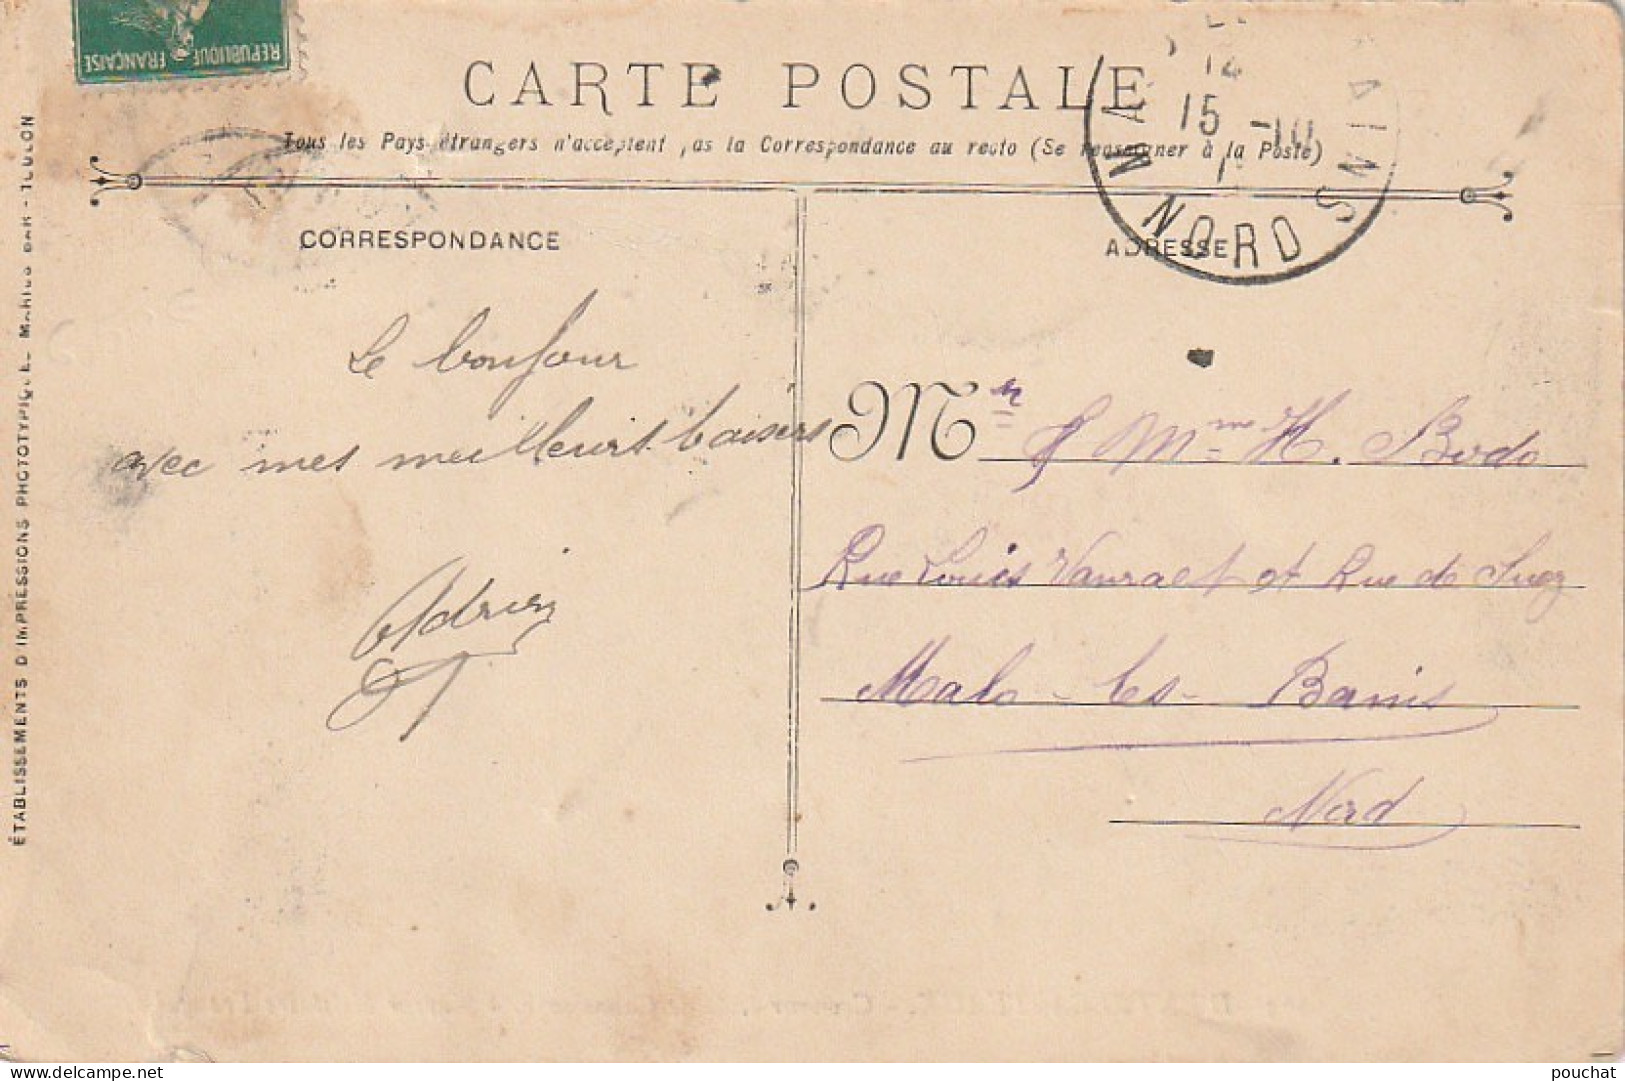 REPUBLIQUE FRANÇAISE
CARTE POSTALE
Tous les Pays étrangers n'acceptent pas la Correspondance au recto (Se renseigner à la Poste)
CORRESPONDANCE
ADRESSE
15 -10
NORD
Le bonjour
avec mes meilleurs baisers
Adrien
Mr & Mme H. Bodo
Rue Louis Vanraet et Rue de Suez
Malo-les-Bains
Nord
ÉTABLISSEMENTS D'IMPRESSIONS PHOTOTYPIQUE MARIUS BAR - TOULON
pouchat